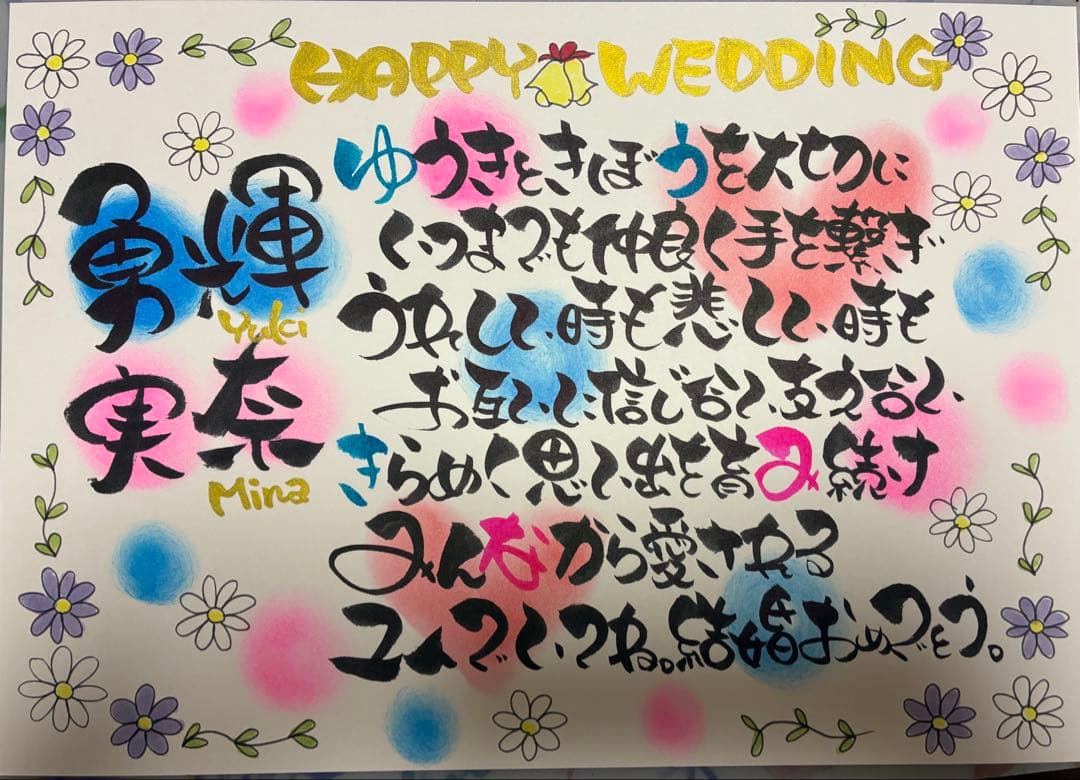 HAPPY WEDDING
勇輝
Yuki
実奈
Mina
ゆうきときぼうを大切に
いつまでも仲良く手を繋ぎ
うれしい時も悲しい時も
お互いに信じ合い支え合い
きらめく思い出を育み続け
みんなから愛される
2人でいてね。結婚おめでとう。